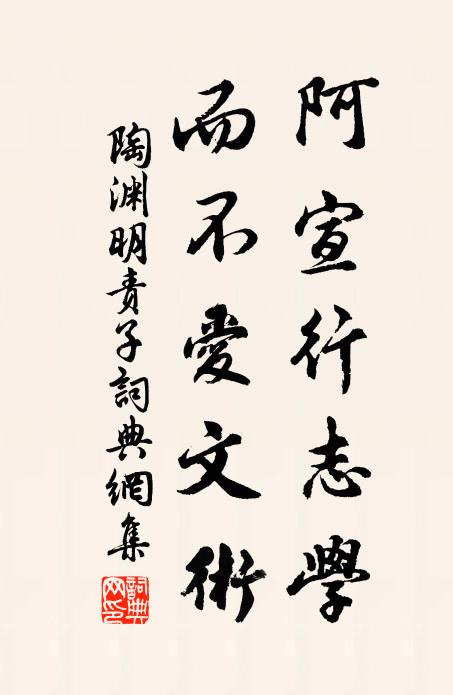 阿宣行志學
而不愛文術
陶渊明責子詞典網集
詞典网印